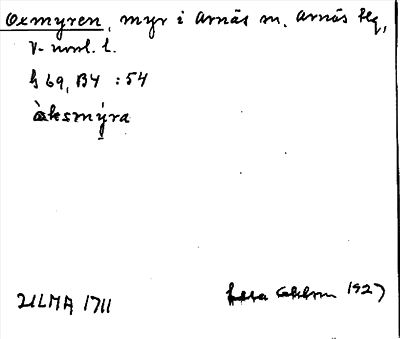 Oxmyren, myr i Arnäs m. Arnäs skg,
V-norrl. l.
h 69, B4 : 54
òksmýra
ULMA 1711 1927